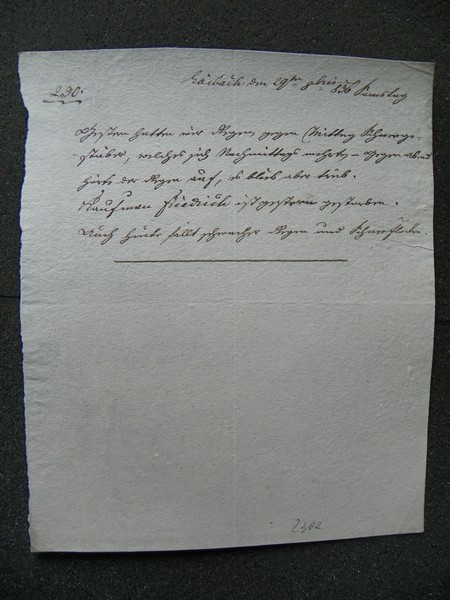 290.
Laibach den 29ten Samstag
Gestern hatten wir Regen, gegen Mittag Schneege-
stöber, welches sich Nachmittags mehrte, – gegen abend
hörte der Regen auf, es blieb aber trüb.
Kaufman Friedrich ist gestern gestorben.
Auch heute fällt schwacher Regen und Schneeflocken.